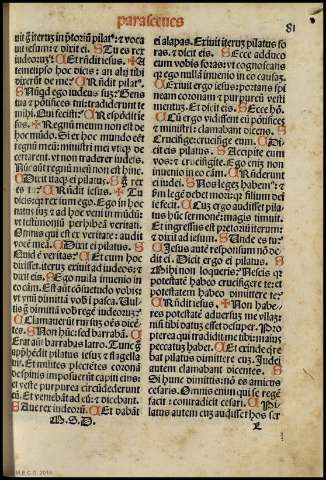 parasceues
81
uit ergo iterum in pretorium pilatus: et voca
uit iesum: et dixit ei. S Tu es rex
iudeorum? C Et respondit iesus. + A
temetipso hoc dicis: an alij tibi
dixerunt de me? C Respondit pilatus.
S Nunquid ego iudeus sum? Gens
tua et pontifices tui: tradiderunt te
mihi. Quid fecisti? C Respondit ie
sus. + Regnum meum non est de
hoc mundo. Si ex hoc mundo esset
regnum meum: ministri mei vtique de
certarent. vt non traderer iudeis.
Nunc autem regnum meum non est hinc.
C Dixit itaque ei pilatus. S Ergo rex
es tu? C Respondit iesus. + Tu
dicis: quia rex sum ego. Ego in hoc
natus sum: et ad hoc veni in mundum:
vt testimonium perhibeam veritati.
Omnis qui est ex veritate: audit
vocem meam. C Dixit ei pilatus. S
Quid est veritas? C Et cum hoc
dixisset. iterum exiuit ad iudeos: et
dixit eis. S Ego nullam inuenio in
eo causam. Est autem consuetudo vobis:
vt vnum dimittam vobis in pasca. Vul
tis ergo dimittam vobis regem iudeorum?
C Clamauerunt rursum omnes dicen
tes. S Non hunc: sed barrabam. C
Erat autem barrabas latro. Tunc ergo
apprehendit pilatus iesum: et flagella
uit. Et milites plectentes coronam
de spinis imposuerunt capiti eius:
et veste purpurea circundederunt
eum. Et veniebant ad eum: et dicebant.
S Aue rex iudeorum. C Et dabant
ei alapas. Exiuit iterum pilatus fo
ras: et dicit eis. S Ecce adduco
eum vobis foras: vt cognoscatis
quia ego nullam inuenio in eo causam.
C Exiuit ergo iesus: portans spi
neam coronam et purpureum vesti
mentum. Et dicit eis. S Ecce homo.
C Cum ergo vidissent eum pontifices
et ministri: clamabant dicentes. S
Crucifige: crucifige eum. C Di
cit eis pilatus. S Accipite eum
vos: et crucifigite. Ego enim non
inuenio in eo causam. C Responderunt
ei iudei. S Nos legem habemus: et
secundum legem debet mori: quia filium dei
se fecit. C Cum ergo audisset pila
tus hunc sermonem: magis timuit.
Et ingressus est pretorium iterum:
et dixit ad iesum. S Unde es tu?
C Iesus autem responsum non de
dit ei. Dicit ergo ei pilatus. S
Mihi non loqueris? Nescis quia
potestatem habeo crucifigere te: et
potestatem habeo dimittere te?
C Respondit iesus. + Non habe
res potestatem aduersum me vllam:
nisi tibi datum esset desuper. Pro
pterea qui tradidit me tibi: maius
peccatum habet. C Et exinde quere
bat pilatus dimittere eum. Iudei
autem clamabant dicentes. S
Si hunc dimittis: non es amicus
cesaris. Omnis enim qui se regem
facit: contradicit cesari. C Pi
latus autem cum audisset hos ser
M.S.D.
L
M.E.C.D. 2016